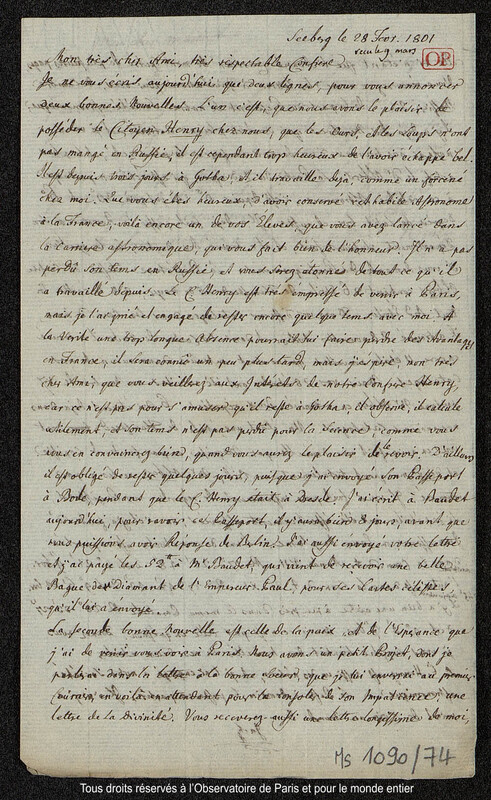 Seeberg le 28 Fevr. 1801
recu le 9 mars
OP
Mon très cher Ami, très respectable Confrere
Je ne vous écris aujourd'hui que deux lignes, pour vous annoncer
deux bonnes Nouvelles. L'un c'est, que nous avons le plaisir de
posséder le Citoyen Henry chez nous, que les ours, et les loups n'ont
pas mangé en Russie, il est cependant trop heureux de l'avoir echappé bel.
Il est depuis trois jours à Gotha, et il travaille deja, comme un forcéné
chez moi. Que vous êtes heureux, d'avoir conservé cet habile Astronome
à la France, voilà encore un de vos Eleves, que vous avez lancé dans
la carriere astronomique, qui vous fait bien de l'honneur. Il n'a pas
perdu son tems en Russie, et vous serez étonnés de tout ce qu'il
a travaillé depuis. Le C. Henry est très empressé de venir à Paris,
mais je l'ai prié et engagé de rester encore quelque tems avec moi. A
la Verité une trop longue Absence pourrait lui faire perdre des Avantages
en France, il sera connu un peu plus tard, mais j'espère, mon très
cher Ami, que vous veillerez aux Interets de notre Confrere Henry,
car ce n'est pas pour s'amuser qu'il reste à Gotha, il observe, il calcule
utilement, et son tems n'est pas perdu pour la Science, comme vous
vous en convaincrez bien, quand vous aurez le plaisir de le revoir. D'ailleurs
il est obligé de rester quelques jours, puisque j'ai envoyé son Passeport
à Bode, pendant que le C. Henry etait à Dresde, j'ai écrit à Baudet
aujourd'hui, pour ravoir ce Passeport, il y aura bien 8 jours, avant que
nous puissions avoir Réponse de Berlin. J'ai aussi envoyé votre lettre
et j'ai payé les 52 à Mr Baudet, qui vient de recevoir une belle
Bague de Diamant de l'Empereur Paul, pour ses Cartes célestes
qu'il lui a envoyé.
La seconde bonne Nouvelle est celle de la paix et de l'Espérance que
j'ai de venir vous voir à Paris. Nous avons un petit Projet, dont je
parlerai dans la lettre à la bonne soeur, que je lui enverrai au premier
Courier, en voilà en attendant pour la consoler de son Impatience, une
lettre de la Divinité. Vous recevrez aussi une lettre longissime de moi,
Ms 1090/74
Tous droits réservés à l'Observatoire de Paris et pour le monde entier